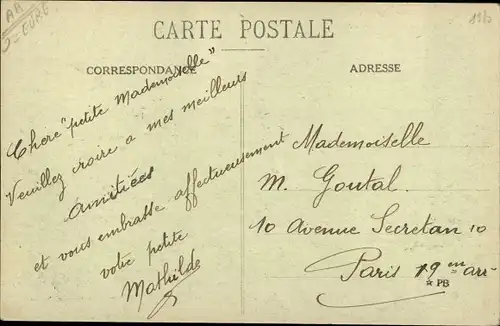 AA
J = EURE
CARTE POSTALE
CORRESPONDANCE
ADRESSE
Chère "petite Mademoiselle"
Veuillez croire a mes meilleurs
amitiées
et vous embrasse affectueusement
votre petite
Mathilde
Mademoiselle
M. Goutal.
10 Avenue Secretan 10
Paris 19em arr
★ PB